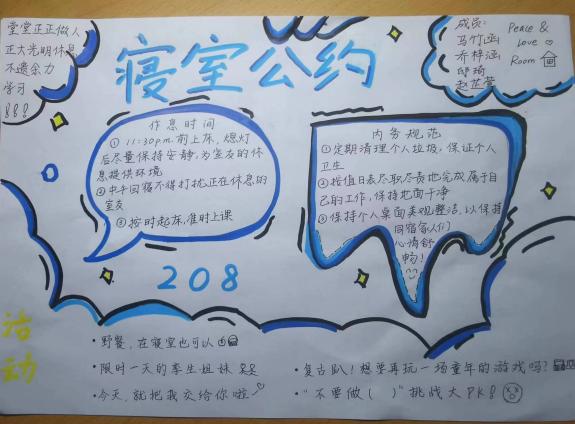 堂堂正正做人
正大光明休息
不遗余力
学习
!!!
寝室公约
成员:
马竹函
乔梓涵
邱琦
赵芷萱
Peace &
Love
Room
作息时间
①11:30p.m.前上床,熄灯
后尽量保持安静,为室友的休
息提供环境
②中午回宿不得打扰正在休息的
室友
③按时起床,准时上课
内务规范
①定期清理个人垃圾,保证个人
卫生
②按值日表尽职尽责地完成属于自
己的工作,保持地面干净
③保持个人桌面美观整洁,以保持
同宿舍人们
心情舒
畅!
208
活动
•野餐,在寝室也可以
•限时一天的孪生姐妹
•今天,就把我交给你啦
•复古趴!想要再玩一场童年的游戏吗?
•“不要做( )”挑战大PK!